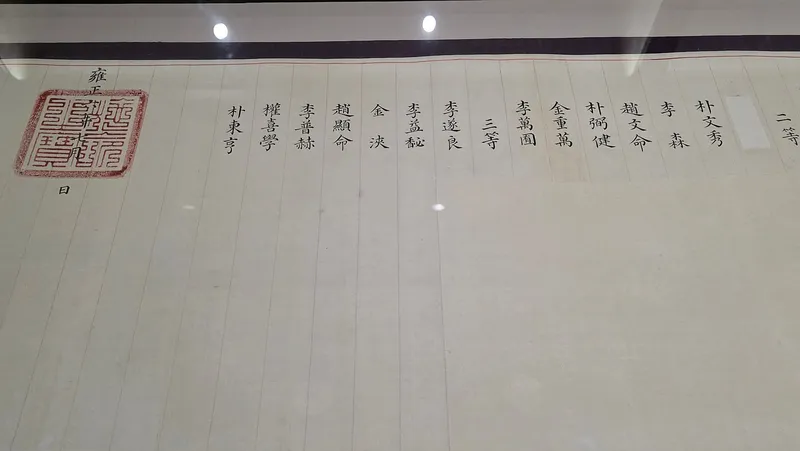 二等
朴文秀
李森
趙文命
朴弼健
金重萬
李萬囿
三等
李遂良
李益馝
金浹
趙顯命
李普赫
權喜學
朴東亨
雍正六年七月 日
施命之寶